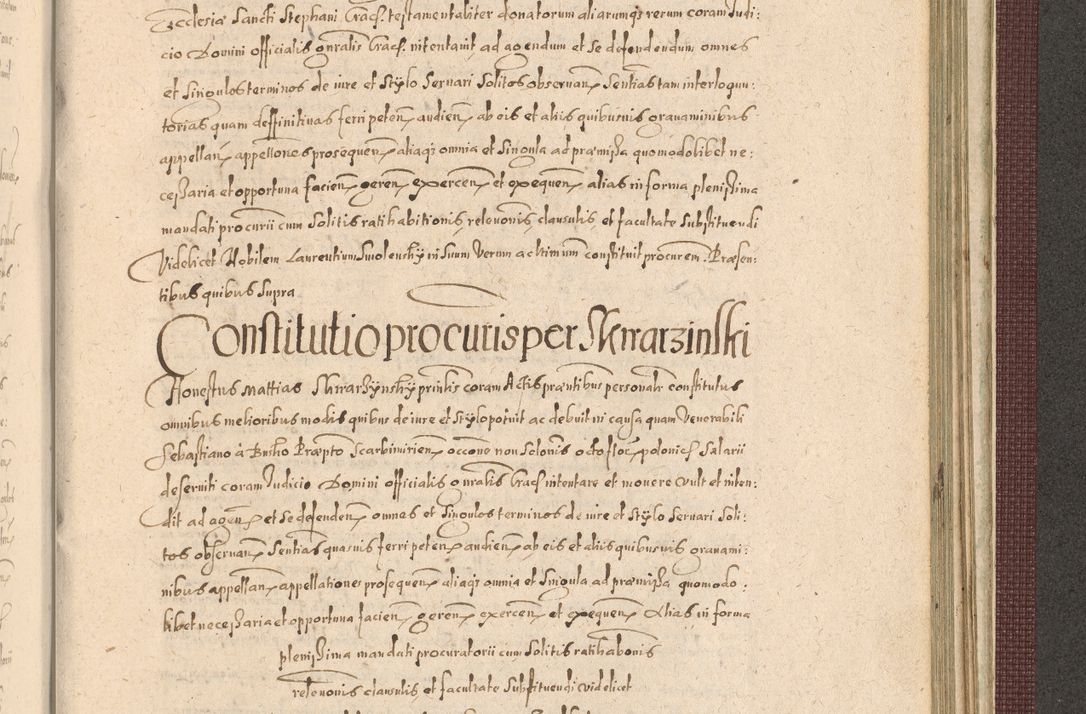 Ecclesia Sancti Stephani Crac. testamentaliter donatorum aliarumq; rerum coram Judi:
cio Domini officialis gnralis Crac. intentavit ad agendum et se defendendum omnes
et singulos terminos de iure et stylo servari solitos observan. sentias tam interloqu:
torias quam deffinitivas ferri peten. audien. ab eis et aliis quibusvis gravaminibus
appellan. appellones prosequen. aliaq; omnia et singula ad præmissa quomodolibet ne:
cessaria et opportuna facien. geren. exercen. et exequen. alias in forma plenissima
mandati procurii cum solitis ratihabitionis, relevonis, clausulis, et facultate substituendi
Videlicet Nobilem Laurentium Smolensky in suum verum ac ltimum constituit procurem. Præsen:
tibus quibus supra
Constitutio procuris per Skrarzinski
Honestus Mattias Skrarzynsky prinlis coram Actis præntibus personalr constitutus
omnibus melioribus modis quibus de iure et stylo potuit ac debuit in causa quam Venerabili
Sebastiano à Busko Præpto Scarbimirien. occone non solonis octo flor. polonic. salarii
deserviti coram Judicio Domini officialis gnralis Crac. intentare et movere vult et inten:
dit ad agen. et se defenden. omnes et singulos terminos de iure et stylo servari soli:
tos observan. sentias quasvis ferri peten. audien. ab eis et aliis quibusvis gravami:
nibus appellan. appellationes prosequen. aliaq; omnia et singula ad præmissa quomodo:
libet necessaria et opportuna facien. geren. exercen. et exequen. Alias in forma
plenissima mandati procuratorii cum solitis ratihabonis
relevonis clausulis, et facultate substituendi videlicet